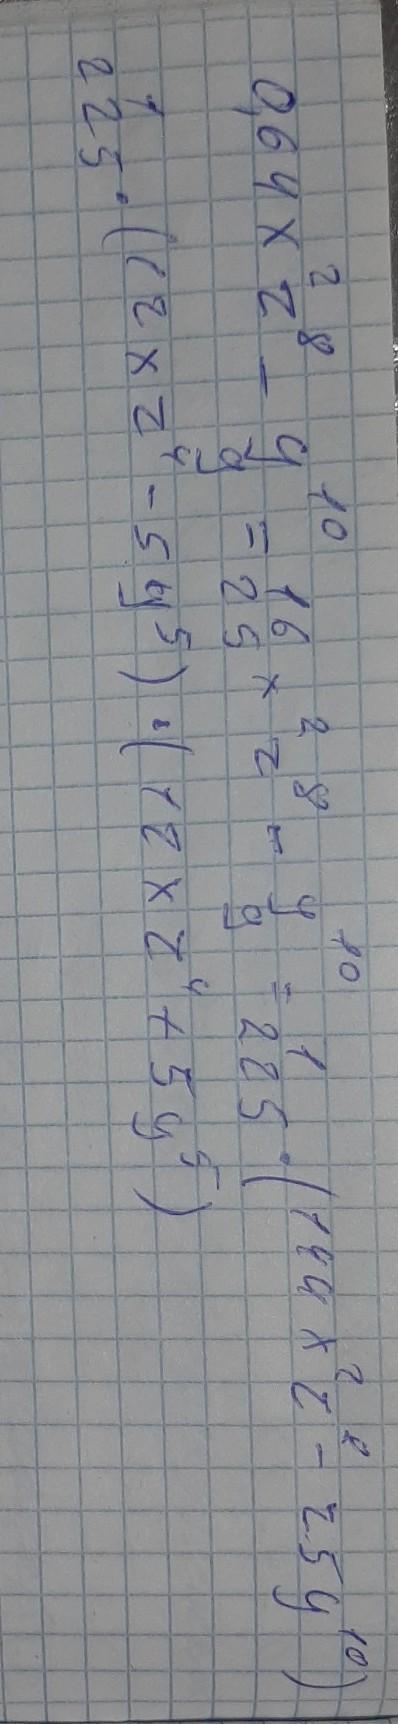 0,64x²z⁸ - y¹⁰/9 = 16/25 x²z⁸ - y¹⁰/9 = 1/225 · (144x²z⁸ - 25y¹⁰)
1/225 · (12xz⁴ - 5y⁵) · (12xz⁴ + 5y⁵)